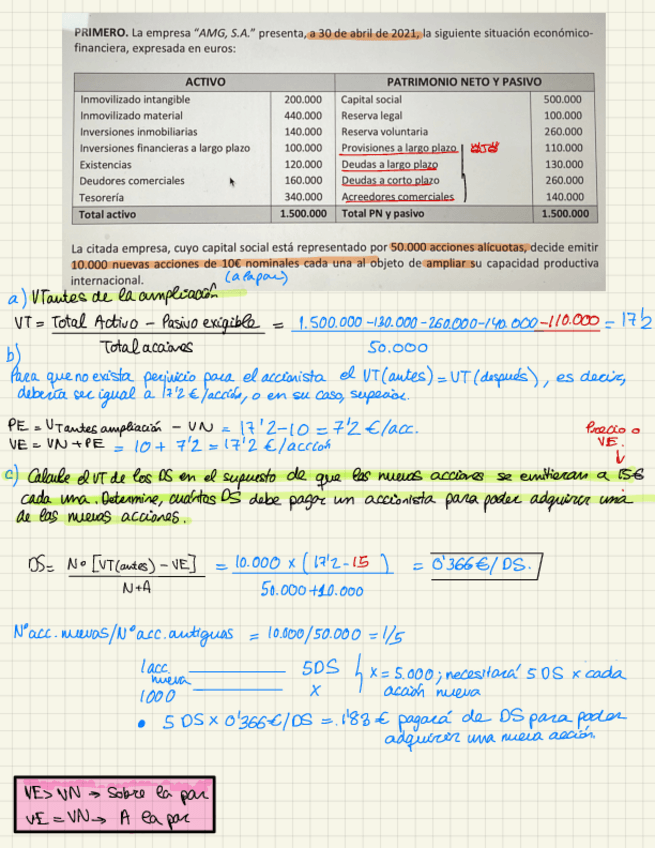 PRIMERO. La empresa "AMG, S.A." presenta, a 30 de abril de 2021, la siguiente situación económico-
financiera, expresada en euros:
ACTIVO PATRIMONIO NETO Y PASIVO
Inmovilizado intangible 200.000 Capital social 500.000
Inmovilizado material 440.000 Reserva legal 100.000
Inversiones inmobiliarias 140.000 Reserva voluntaria 260.000
Inversiones financieras a largo plazo 100.000 Provisiones a largo plazo 110.000
Existencias 120.000 Deudas a largo plazo 130.000
Deudores comerciales 160.000 Deudas a corto plazo 260.000
Tesorería 340.000 Acreedores comerciales 140.000
Total activo 1.500.000 Total PN y pasivo 1.500.000
La citada empresa, cuyo capital social está representado por 50.000 acciones alícuotas, decide emitir
10.000 nuevas acciones de 10€ nominales cada una al objeto de ampliar su capacidad productiva
internacional. (a la par)
a) VTantes de la ampliación
VT = Total Activo - Pasivo exigible / Total acciones = 1.500.000 - 130.000 - 260.000 - 140.000 - 110.000 / 50.000 = 17'2
b)
Para que no exista perjuicio para el accionista el VT(antes) = VT(después), es decir,
debería ser igual a 17'2 €/acción, o en su caso, superior.
PE = VTantes ampliación - VN = 17'2 - 10 = 7'2 €/acc.
VE = VN + PE = 10 + 7'2 = 17'2 €/acción
Precio o
VE.
c) Calcule el VT de los DS en el supuesto de que las nuevas acciones se emitieran a 15€
cada una. Determine, cuántos DS debe pagar un accionista para poder adquirir una
de las nuevas acciones.
DS = Nº [VT(antes) - VE] / N+A = 10.000 x (17'2 - 15) / 50.000 + 10.000 = 0'366 €/DS.
Nº acc. nuevas/Nº acc. antiguas = 10.000/50.000 = 1/5
1 acc. nueva 5DS
1000 x
x = 5.000; necesitará 5 DS x cada
acción nueva
• 5 DS x 0'366 €/DS = 1'83 € pagará de DS para poder
adquirir una nueva acción.
VE > VN → Sobre la par
VE = VN → A la par